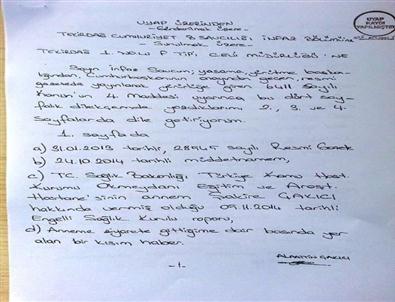 UYAP ÜZERİNDEN
- Gönderilmek Üzere -
TEKİRDAĞ CUMHURİYET B. SAVCILIĞI İNFAZ BÖLÜMÜNE
- Sunulmak Üzere -
TEKİRDAĞ 1. NOLU F TİPİ CEZA MÜDÜRLÜĞÜ'NE
UYAP
KAYDI
YAPILMIŞTIR
Sayın İnfaz Savcım; yasama, yürütme, başba-
kanlığından, Cumhurbaşkanının onayından geçen, resmi
gazetede yayınlanarak yürürlüğe giren 6411 Sayılı
Kanun'un 4. Maddesi uyarınca bu dört say-
falık dilekçemde yazdıklarımı 2., 3. ve 4.
sayfalarda dile getiriyorum.
1. sayfada
a) 31.01.2013 tarihli, 28545 sayılı, Resmi Gazete
b) 24.10.2014 tarihli müddetnamem,
c) TC. Sağlık Bakanlığı, Türkiye Kamu Hast.
Kurumu Okmeydanı Eğitim ve Araşt.
Hastane'sinin annem Şakire ÇAKICI
hakkında vermiş olduğu 09.11.2014 tarihli
Engelli Sağlık Kurulu raporu,
d) Anneme ziyarete gittiğime dair basında yer
alan bir kısım haber.
ALAATTİN ÇAKICI
-1-